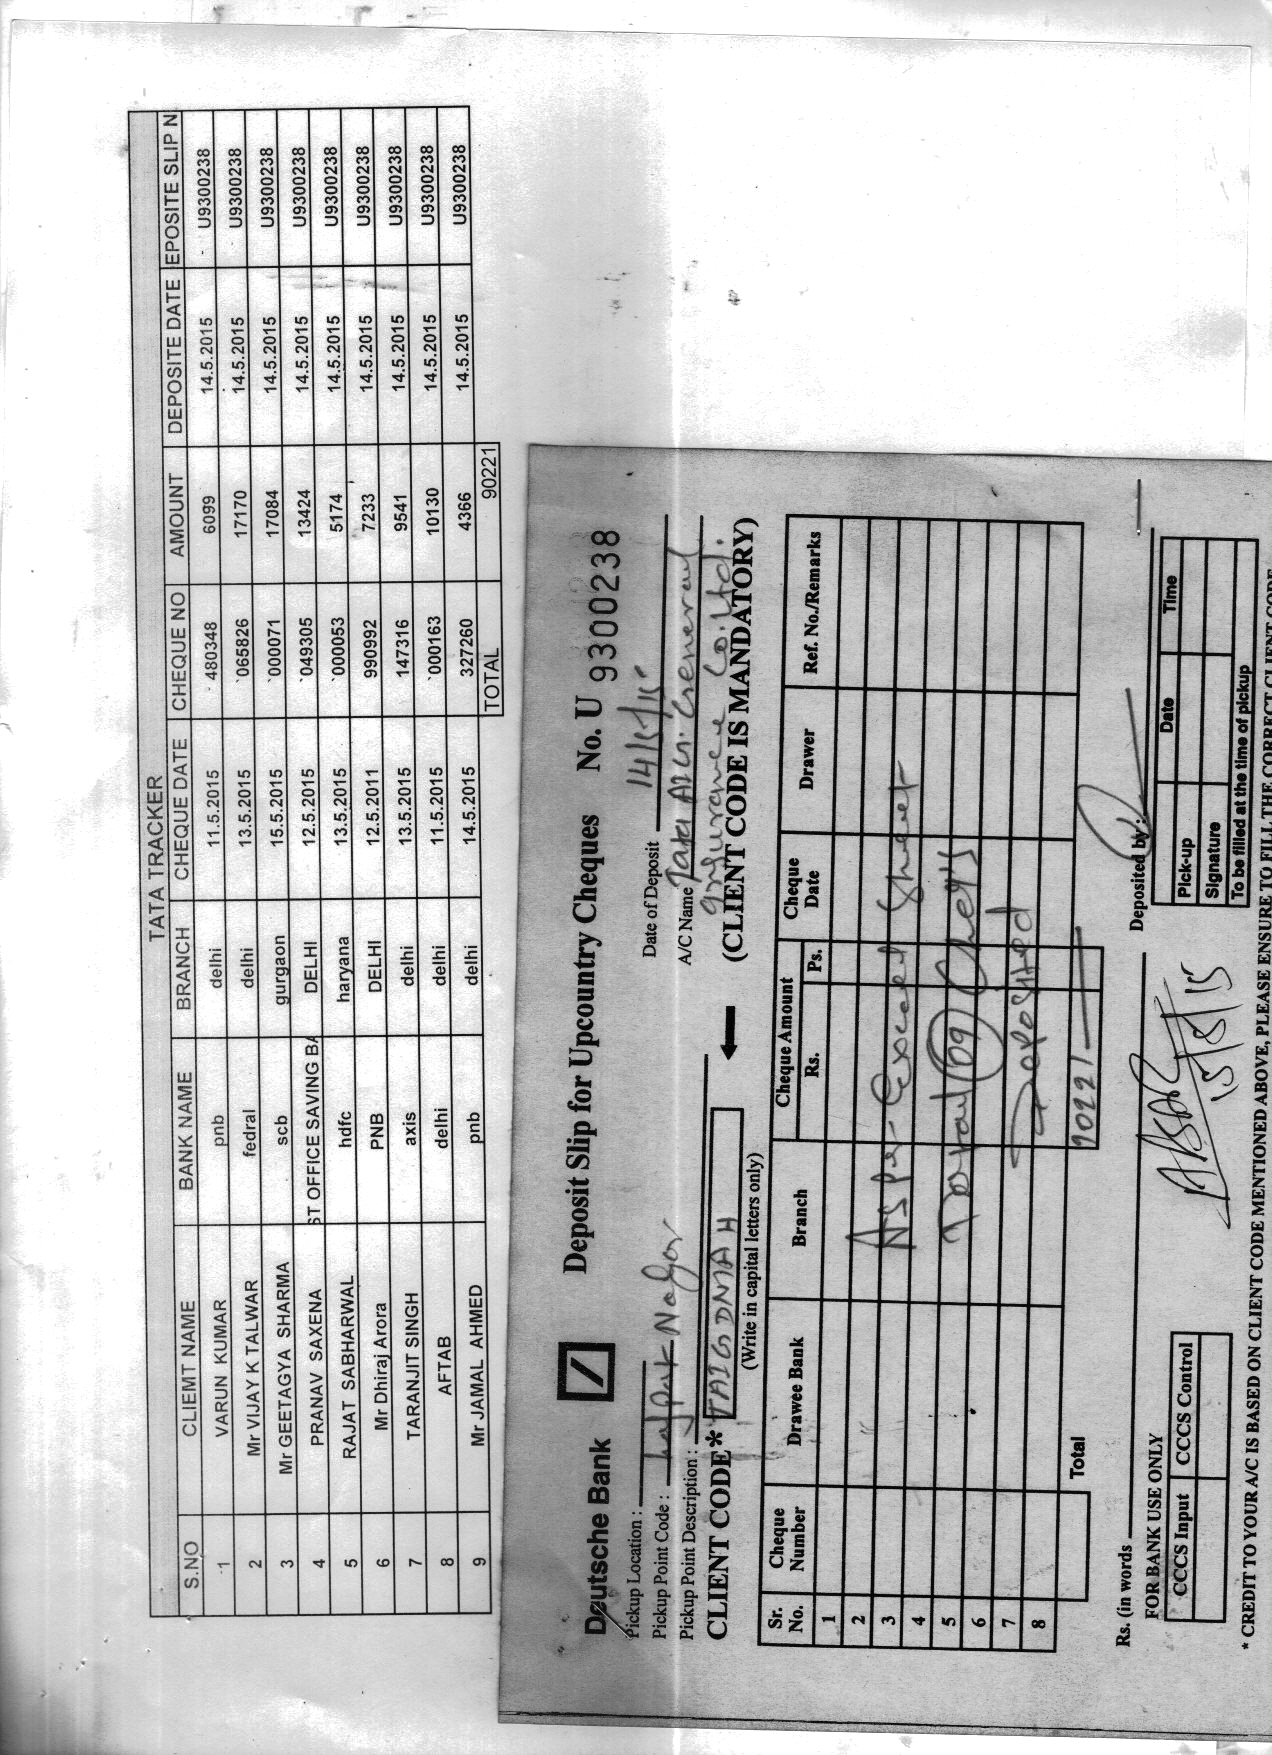 TATA TRACKER
S.NO CLIEMT NAME BANK NAME BRANCH CHEQUE DATE CHEQUE NO AMOUNT DEPOSITE DATE EPOSITE SLIP N
1 VARUN KUMAR pnb delhi 11.5.2015 480348 6099 14.5.2015 U9300238
2 Mr VIJAY K TALWAR fedral delhi 13.5.2015 `065826 17170 14.5.2015 U9300238
3 Mr GEETAGYA SHARMA scb gurgaon 15.5.2015 `000071 17084 14.5.2015 U9300238
4 PRANAV SAXENA ST OFFICE SAVING BA DELHI 12.5.2015 `049305 13424 14.5.2015 U9300238
5 RAJAT SABHARWAL hdfc haryana 13.5.2015 `000053 5174 14.5.2015 U9300238
6 Mr Dhiraj Arora PNB DELHI 12.5.2011 990992 7233 14.5.2015 U9300238
7 TARANJIT SINGH axis delhi 13.5.2015 147316 9541 14.5.2015 U9300238
8 AFTAB delhi delhi 11.5.2015 `000163 10130 14.5.2015 U9300238
9 Mr JAMAL AHMED pnb delhi 14.5.2015 327260 4366 14.5.2015 U9300238
TOTAL 90221
Deutsche Bank Deposit Slip for Upcountry Cheques No. U 9300238
Pickup Location :
Date of Deposit 14/5/15
Pickup Point Code : Nagar
A/C Name Tata AIG General
Pickup Point Description :
Insurance Co. Ltd.
CLIENT CODE* TAIGDNAH (CLIENT CODE IS MANDATORY)
(Write in capital letters only)
Sr. No. Cheque Number Drawee Bank Branch Cheque Amount Rs. Ps. Cheque Date Drawer Ref. No./Remarks
1
2
3 As per Excel Sheet
4
5 Total 09 Cheq's
6
7 Deposited
8
Total 90221
Rs. (in words
Deposited by :
FOR BANK USE ONLY
CCCS Input CCCS Control
15/5/15
Pick-up Date Time
Signature
To be filled at the time of pickup
* CREDIT TO YOUR A/C IS BASED ON CLIENT CODE MENTIONED ABOVE, PLEASE ENSURE TO FILL THE CORRECT CLIENT CODE